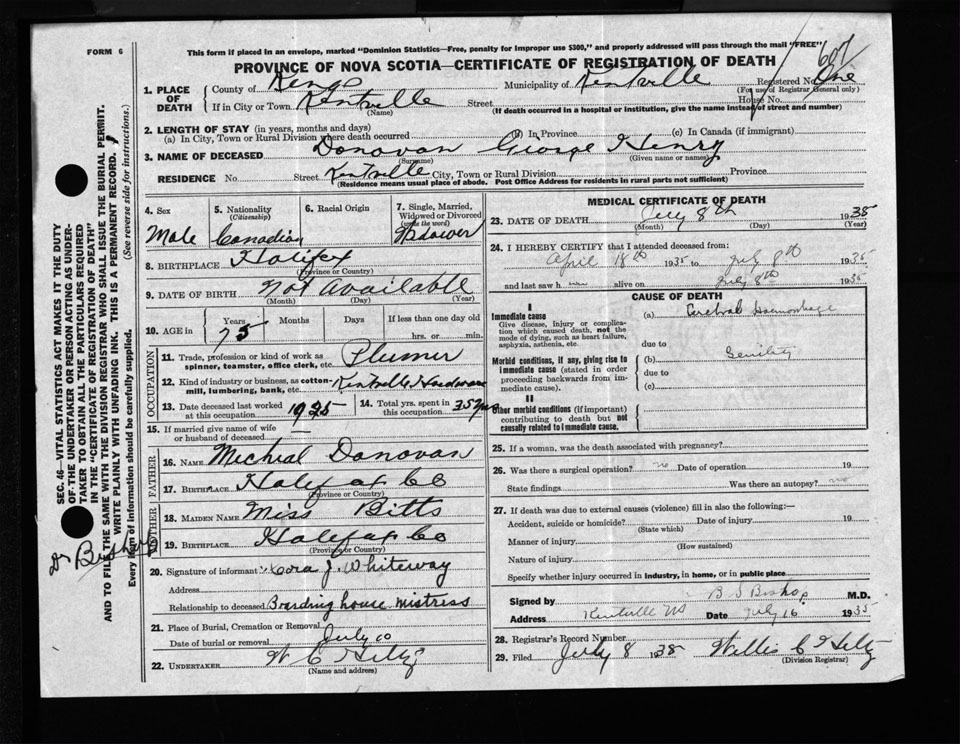 FORM 6
This form if placed in an envelope, marked "Dominion Statistics—Free, penalty for improper use $300," and properly addressed will pass through the mail "FREE"
607
PROVINCE OF NOVA SCOTIA—CERTIFICATE OF REGISTRATION OF DEATH
1. PLACE OF DEATH County of Kings Municipality of Kentville Registered No. One
(For use of Registrar General only)
If in City or Town Kentville Street House No.
(Name) (If death occurred in a hospital or institution, give the name instead of street and number)
2. LENGTH OF STAY (in years, months and days)
(a) In City, Town or Rural Division where death occurred (b) In Province (c) In Canada (if immigrant)
3. NAME OF DECEASED Donovan George Henry
(Surname) (Given name or names)
RESIDENCE No. Street Kentville City, Town or Rural Division Province
(Residence means usual place of abode. Post Office Address for residents in rural parts not sufficient)
SEC. 46—VITAL STATISTICS ACT MAKES IT THE DUTY
OF THE UNDERTAKER OR PERSON ACTING AS UNDER-
TAKER TO OBTAIN ALL THE PARTICULARS REQUIRED
IN THE "CERTIFICATE OF REGISTRATION OF DEATH"
AND TO FILE THE SAME WITH THE DIVISION REGISTRAR WHO SHALL ISSUE THE BURIAL PERMIT.
WRITE PLAINLY WITH UNFADING INK. THIS IS A PERMANENT RECORD.
Every item of information should be carefully supplied. (See reverse side for instructions.)
Dr Bishop
4. Sex Male
5. Nationality (Citizenship) Canadian
6. Racial Origin
7. Single, Married, Widowed or Divorced (write the word) Widower
8. BIRTHPLACE Halifax
(Province or Country)
9. DATE OF BIRTH Not Available
(Month) (Day) (Year)
10. AGE in Years 75 Months Days If less than one day old
hrs. or min.
OCCUPATION
11. Trade, profession or kind of work as spinner, teamster, office clerk, etc. Plumer
12. Kind of industry or business, as cotton-mill, lumbering, bank, etc. Kentville Hardware
13. Date deceased last worked at this occupation 1925
14. Total yrs. spent in this occupation 35 yrs
15. If married give name of wife or husband of deceased —
FATHER
16. NAME Micheal Donovan
17. BIRTHPLACE Halifax Co
(Province or Country)
MOTHER
18. MAIDEN NAME Miss Bitts
19. BIRTHPLACE Halifax Co
(Province or Country)
20. Signature of informant Cora J. Whiteway
Address
Relationship to deceased Boarding house mistress
21. Place of Burial, Cremation or Removal
Date of burial or removal July 10
22. UNDERTAKER W C Hiltz
(Name and address)
MEDICAL CERTIFICATE OF DEATH
23. DATE OF DEATH July 8th 1935
(Month) (Day) (Year)
24. I HEREBY CERTIFY that I attended deceased from:
April 18th 1935 to July 8th 1935
and last saw h alive on July 8th 1935
CAUSE OF DEATH
I
Immediate cause
Give disease, injury or complication which caused death, not the mode of dying, such as heart failure, asphyxia, asthenia, etc.
(a) Cerebral Haemorrhage
due to
Morbid conditions, if any, giving rise to immediate cause (stated in order proceeding backwards from immediate cause).
(b) Senility
due to
(c)
II
Other morbid conditions (if important) contributing to death but not causally related to immediate cause.
25. If a woman, was the death associated with pregnancy?
26. Was there a surgical operation? no Date of operation 19
State findings Was there an autopsy? no
27. If death was due to external causes (violence) fill in also the following:—
Accident, suicide or homicide? Date of injury 19
(State which)
Manner of injury
(How sustained)
Nature of injury
Specify whether injury occurred in industry, in home, or in public place
Signed by B S Bishop M.D.
Address Kentville NS Date July 16 1935
28. Registrar's Record Number
29. Filed July 8 1935 Willis C Hiltz
(Division Registrar)